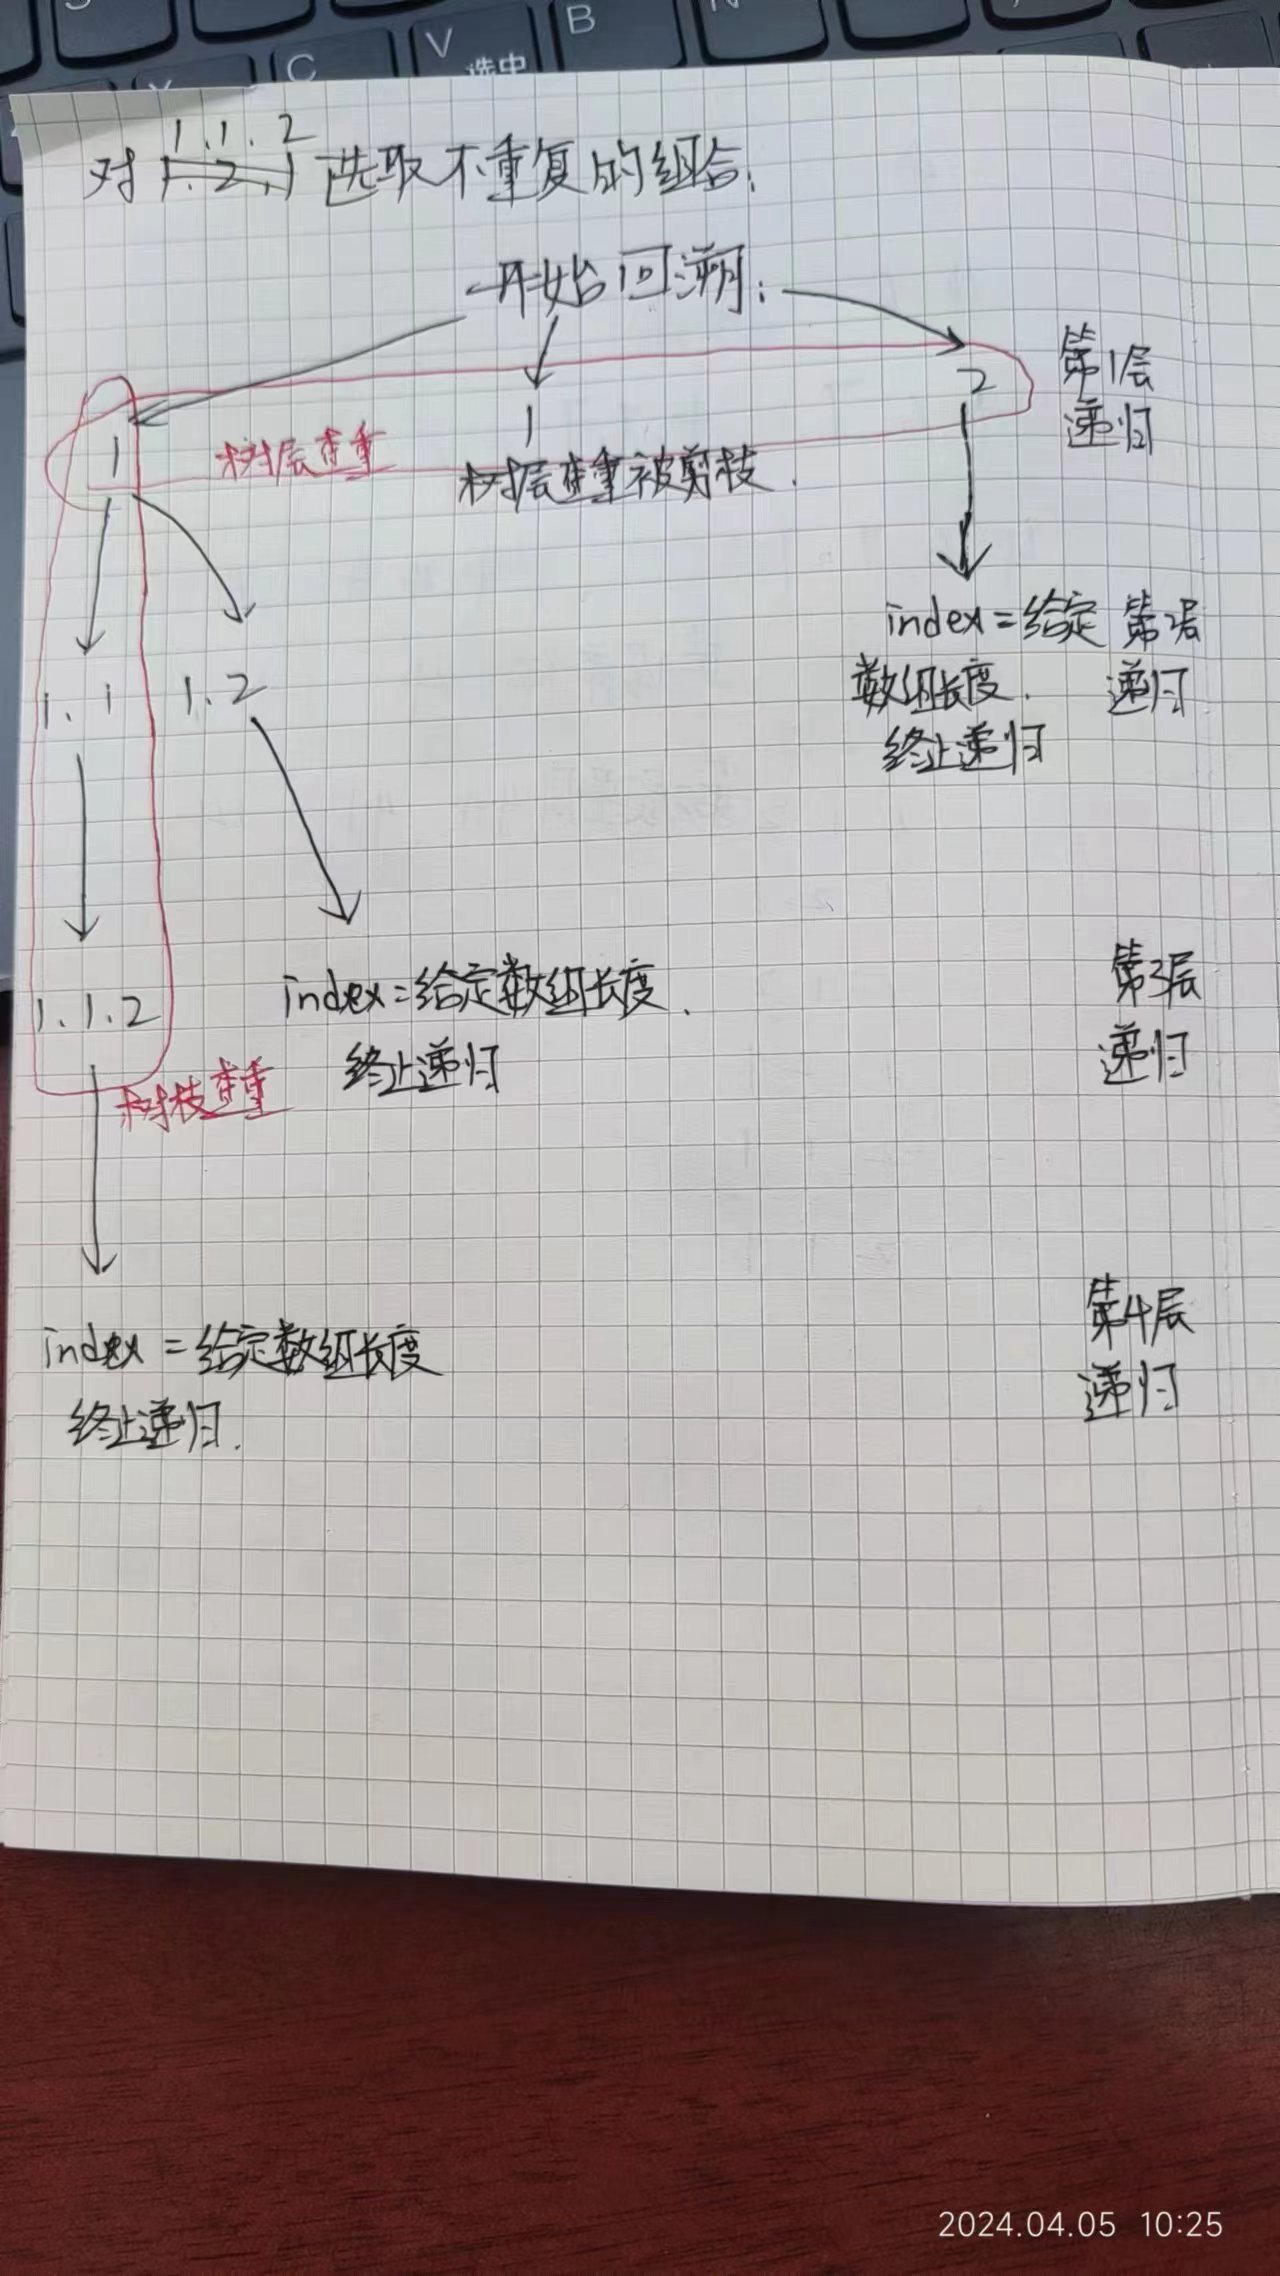 B
V
C
选中
1.1.2
对 1.2.1 选取不重复的组合:
开始回溯:
第1层
递归
1
1
2
树层去重
树层去重被剪枝.
index=给定
数组长度.
终止递归
第2层
递归
1.1
1.2
1.1.2
index=给定数组长度.
终止递归
第3层
递归
树枝去重
index=给定数组长度
终止递归.
第4层
递归
2024.04.05 10:25